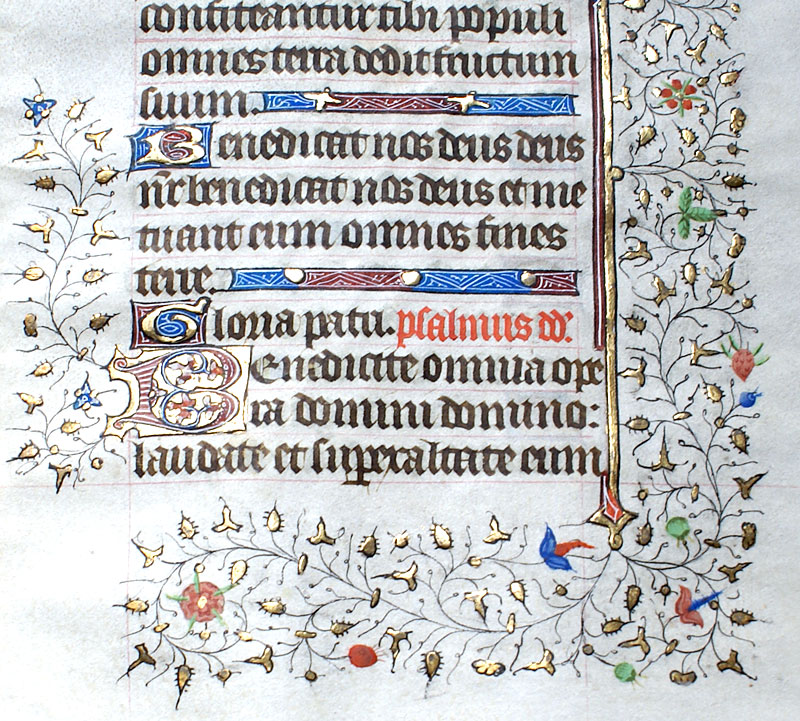 confiteantur tibi populi
omnes terra dedit fructum
suum.
Benedicat nos deus deus
nr̄ benedicat nos deus et me
tuant eum omnes fines
terre.
Gloria patri. psalmus dd:
Benedicite omnia ope
ra domini domino:
laudate et superaltate eum